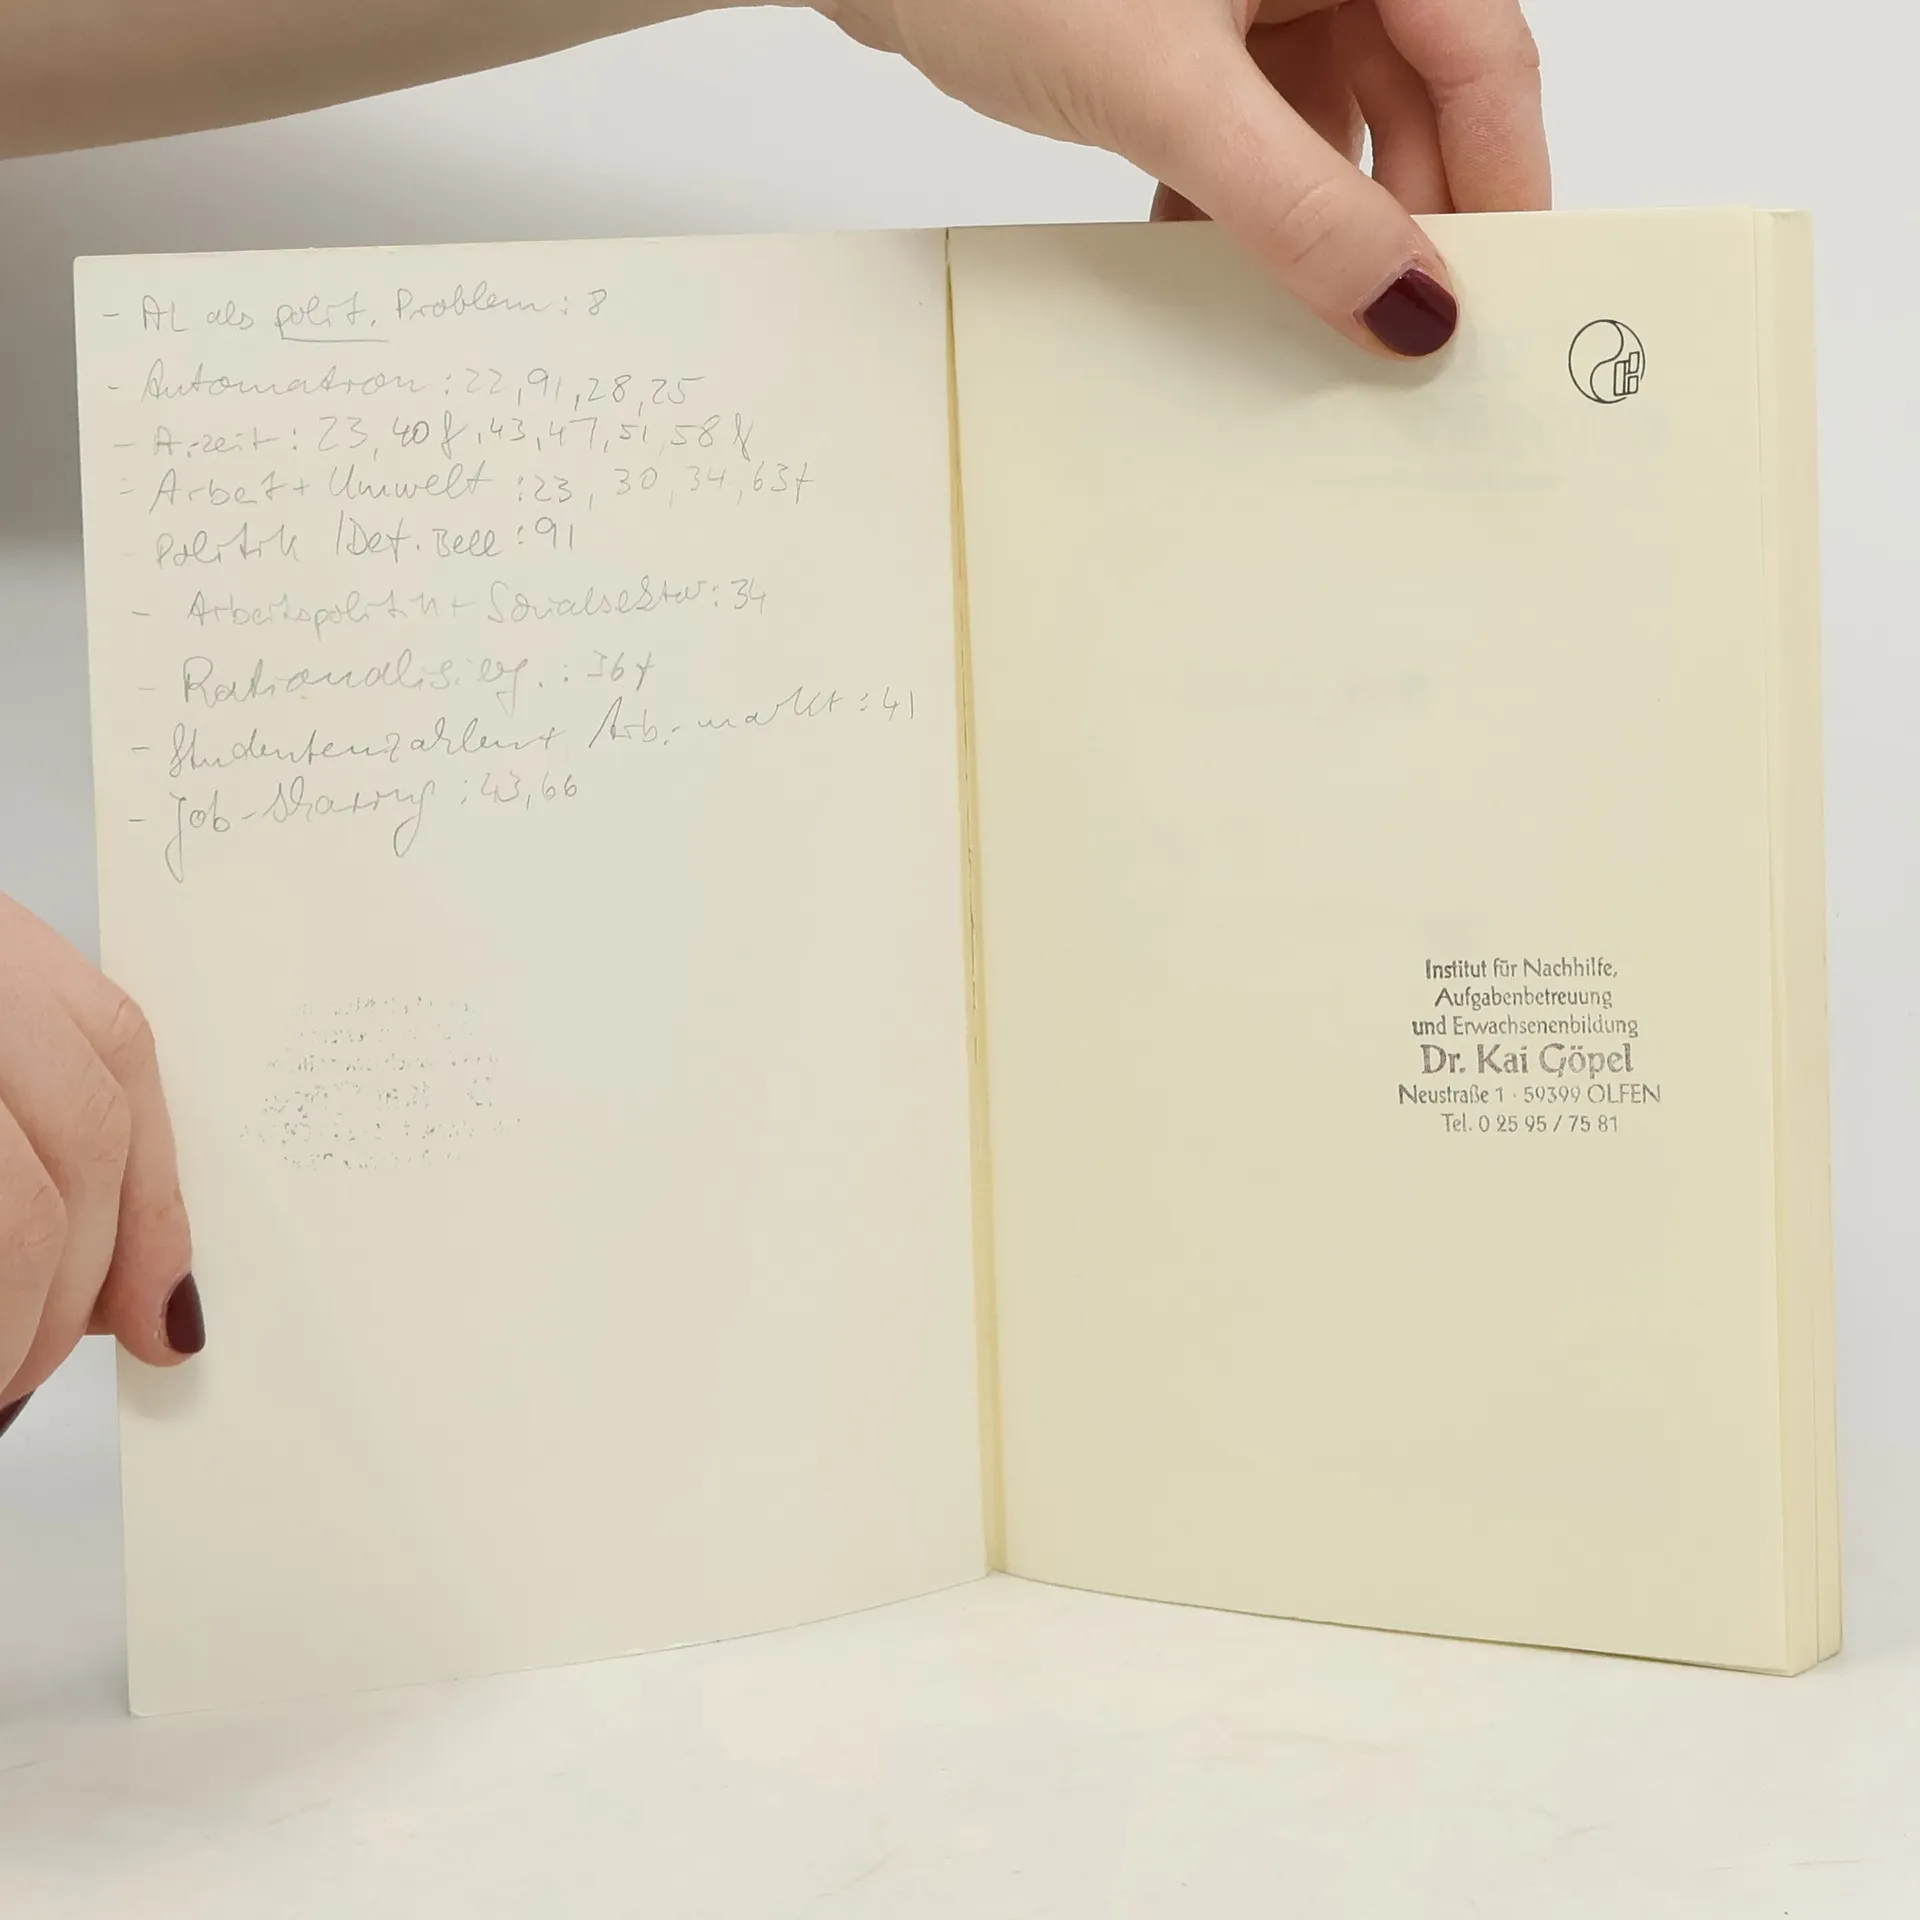 - AL als polit. Problem: 8
- Automation: 22, 91, 28, 25
- A.zeit: 23, 40f, 43, 47, 51, 58f
- Arbeit + Umwelt: 23, 30, 34, 63f
- Politik /Def. Bell: 91
- Arbeitspolitik + Sozialsektor: 34
- Rationalisierg.: 36f
- Studentenzahlen + Arb.-markt: 41
- Job-sharing: 43, 66
Institut für Nachhilfe,
Aufgabenbetreuung
und Erwachsenenbildung
Dr. Kai Göpel
Neustraße 1 · 59399 OLFEN
Tel. 0 25 95 / 75 81